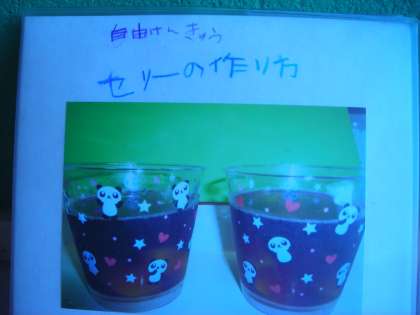 自由けんきゅう
セリーの作り方